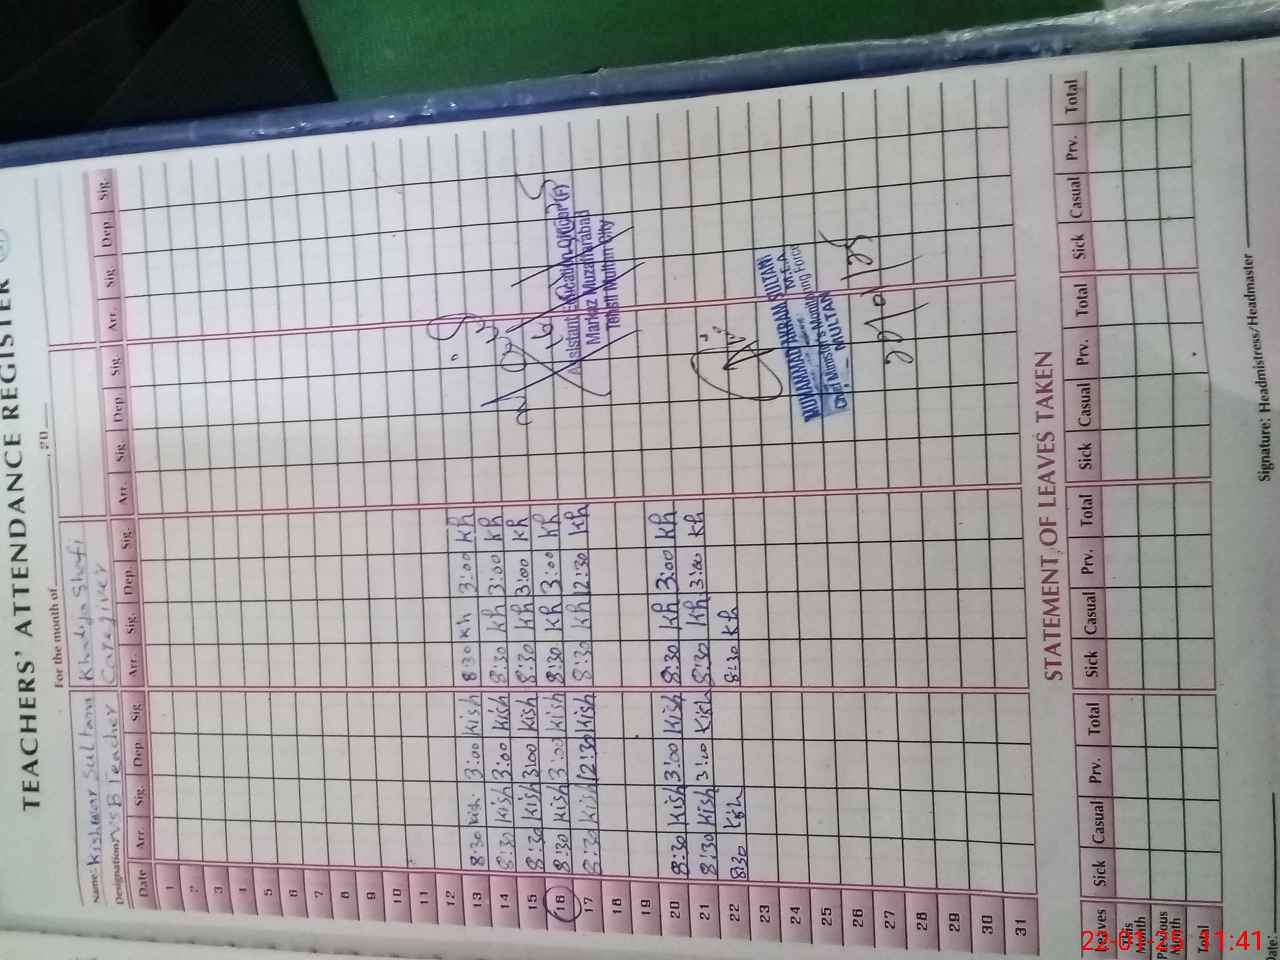 TEACHERS' ATTENDANCE REGISTER
For the month of , 20
Name: Kishwar Sultana Khadija Shafi
Designation: NSB Teacher Caregiver
Date Arr. Sig. Dep. Sig. Arr. Sig. Dep. Sig. Arr. Sig. Dep. Sig. Arr. Sig. Dep Sig.
1
2
3
4
5
6
7
8
9
10
11
12
13 8:30 Kish 3:00 Kish 8:30 Kh 3:00 Kh
14 8:30 Kish 3:00 Kish 8:30 Kh 3:00 Kh
15 8:30 Kish 3:00 Kish 8:30 Kh 3:00 Kh
16 8:30 Kish 3:00 Kish 8:30 Kh 3:00 Kh
17 8:30 Kish 12:30 Kish 8:30 Kh 12:30 Kh
Assistant Education Officer (F)
Markaz Muzaffarabad
Tehsil Multan City
18
19
20 8:30 Kish 3:00 Kish 8:30 Kh 3:00 Kh
21 8:30 Kish 3:00 Kish 8:30 Kh 3:00 Kh
22 8:30 Kish 8:30 Kh
MUHAMMAD AKRAM SULTANI
M.E.A
Chief Minister's Monitoring Force
MULTAN
23
24
25
26
27
28
29
30
31
STATEMENT OF LEAVES TAKEN
Leaves Sick Casual Prv. Total Sick Casual Prv. Total Sick Casual Prv. Total Sick Casual Prv. Total
This Month
Previous Month
Total
Date: Signature: Headmistress/Headmaster
22-01-25 11:41